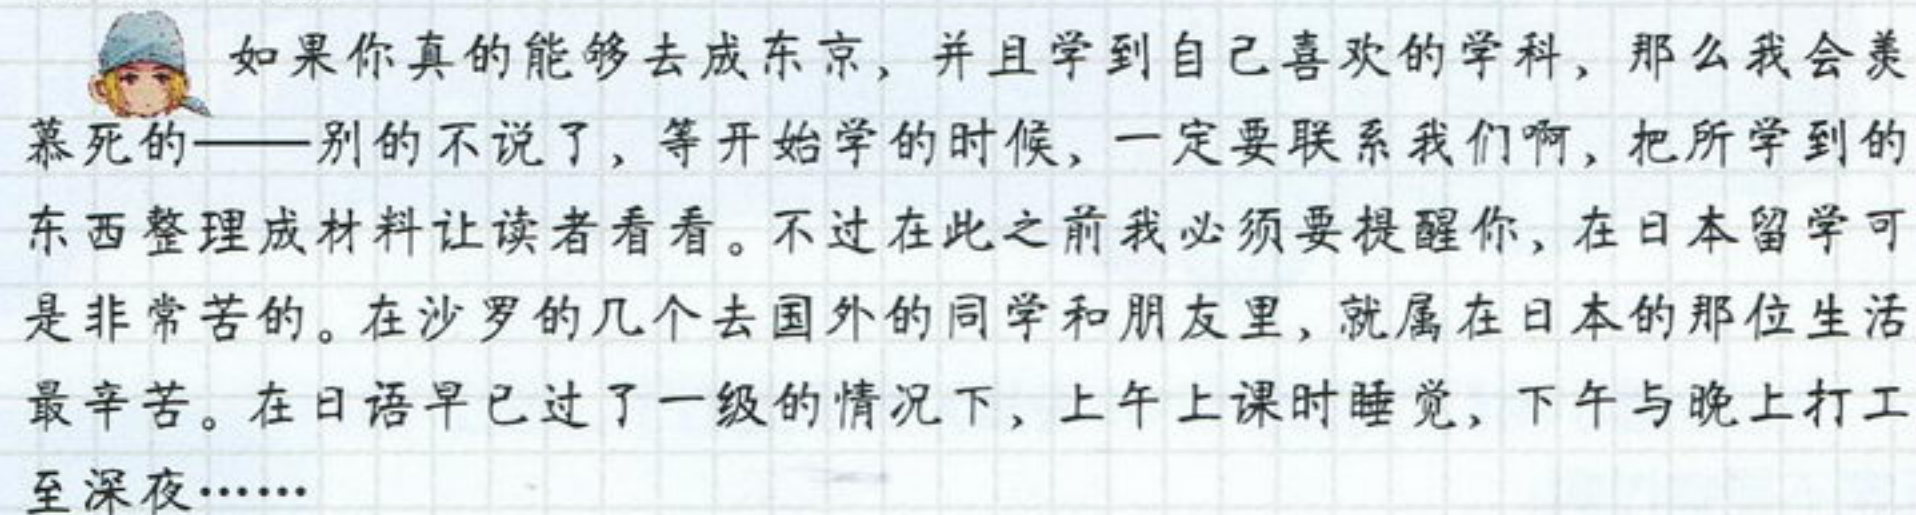 如果你真的能够去成东京，并且学到自己喜欢的学科，那么我会羡
慕死的——别的不说了，等开始学的时候，一定要联系我们啊，把所学到的
东西整理成材料让读者看看。不过在此之前我必须要提醒你，在日本留学可
是非常苦的。在沙罗的几个去国外的同学和朋友里，就属在日本的那位生活
最辛苦。在日语早已过了一级的情况下，上午上课时睡觉，下午与晚上打工
至深夜……